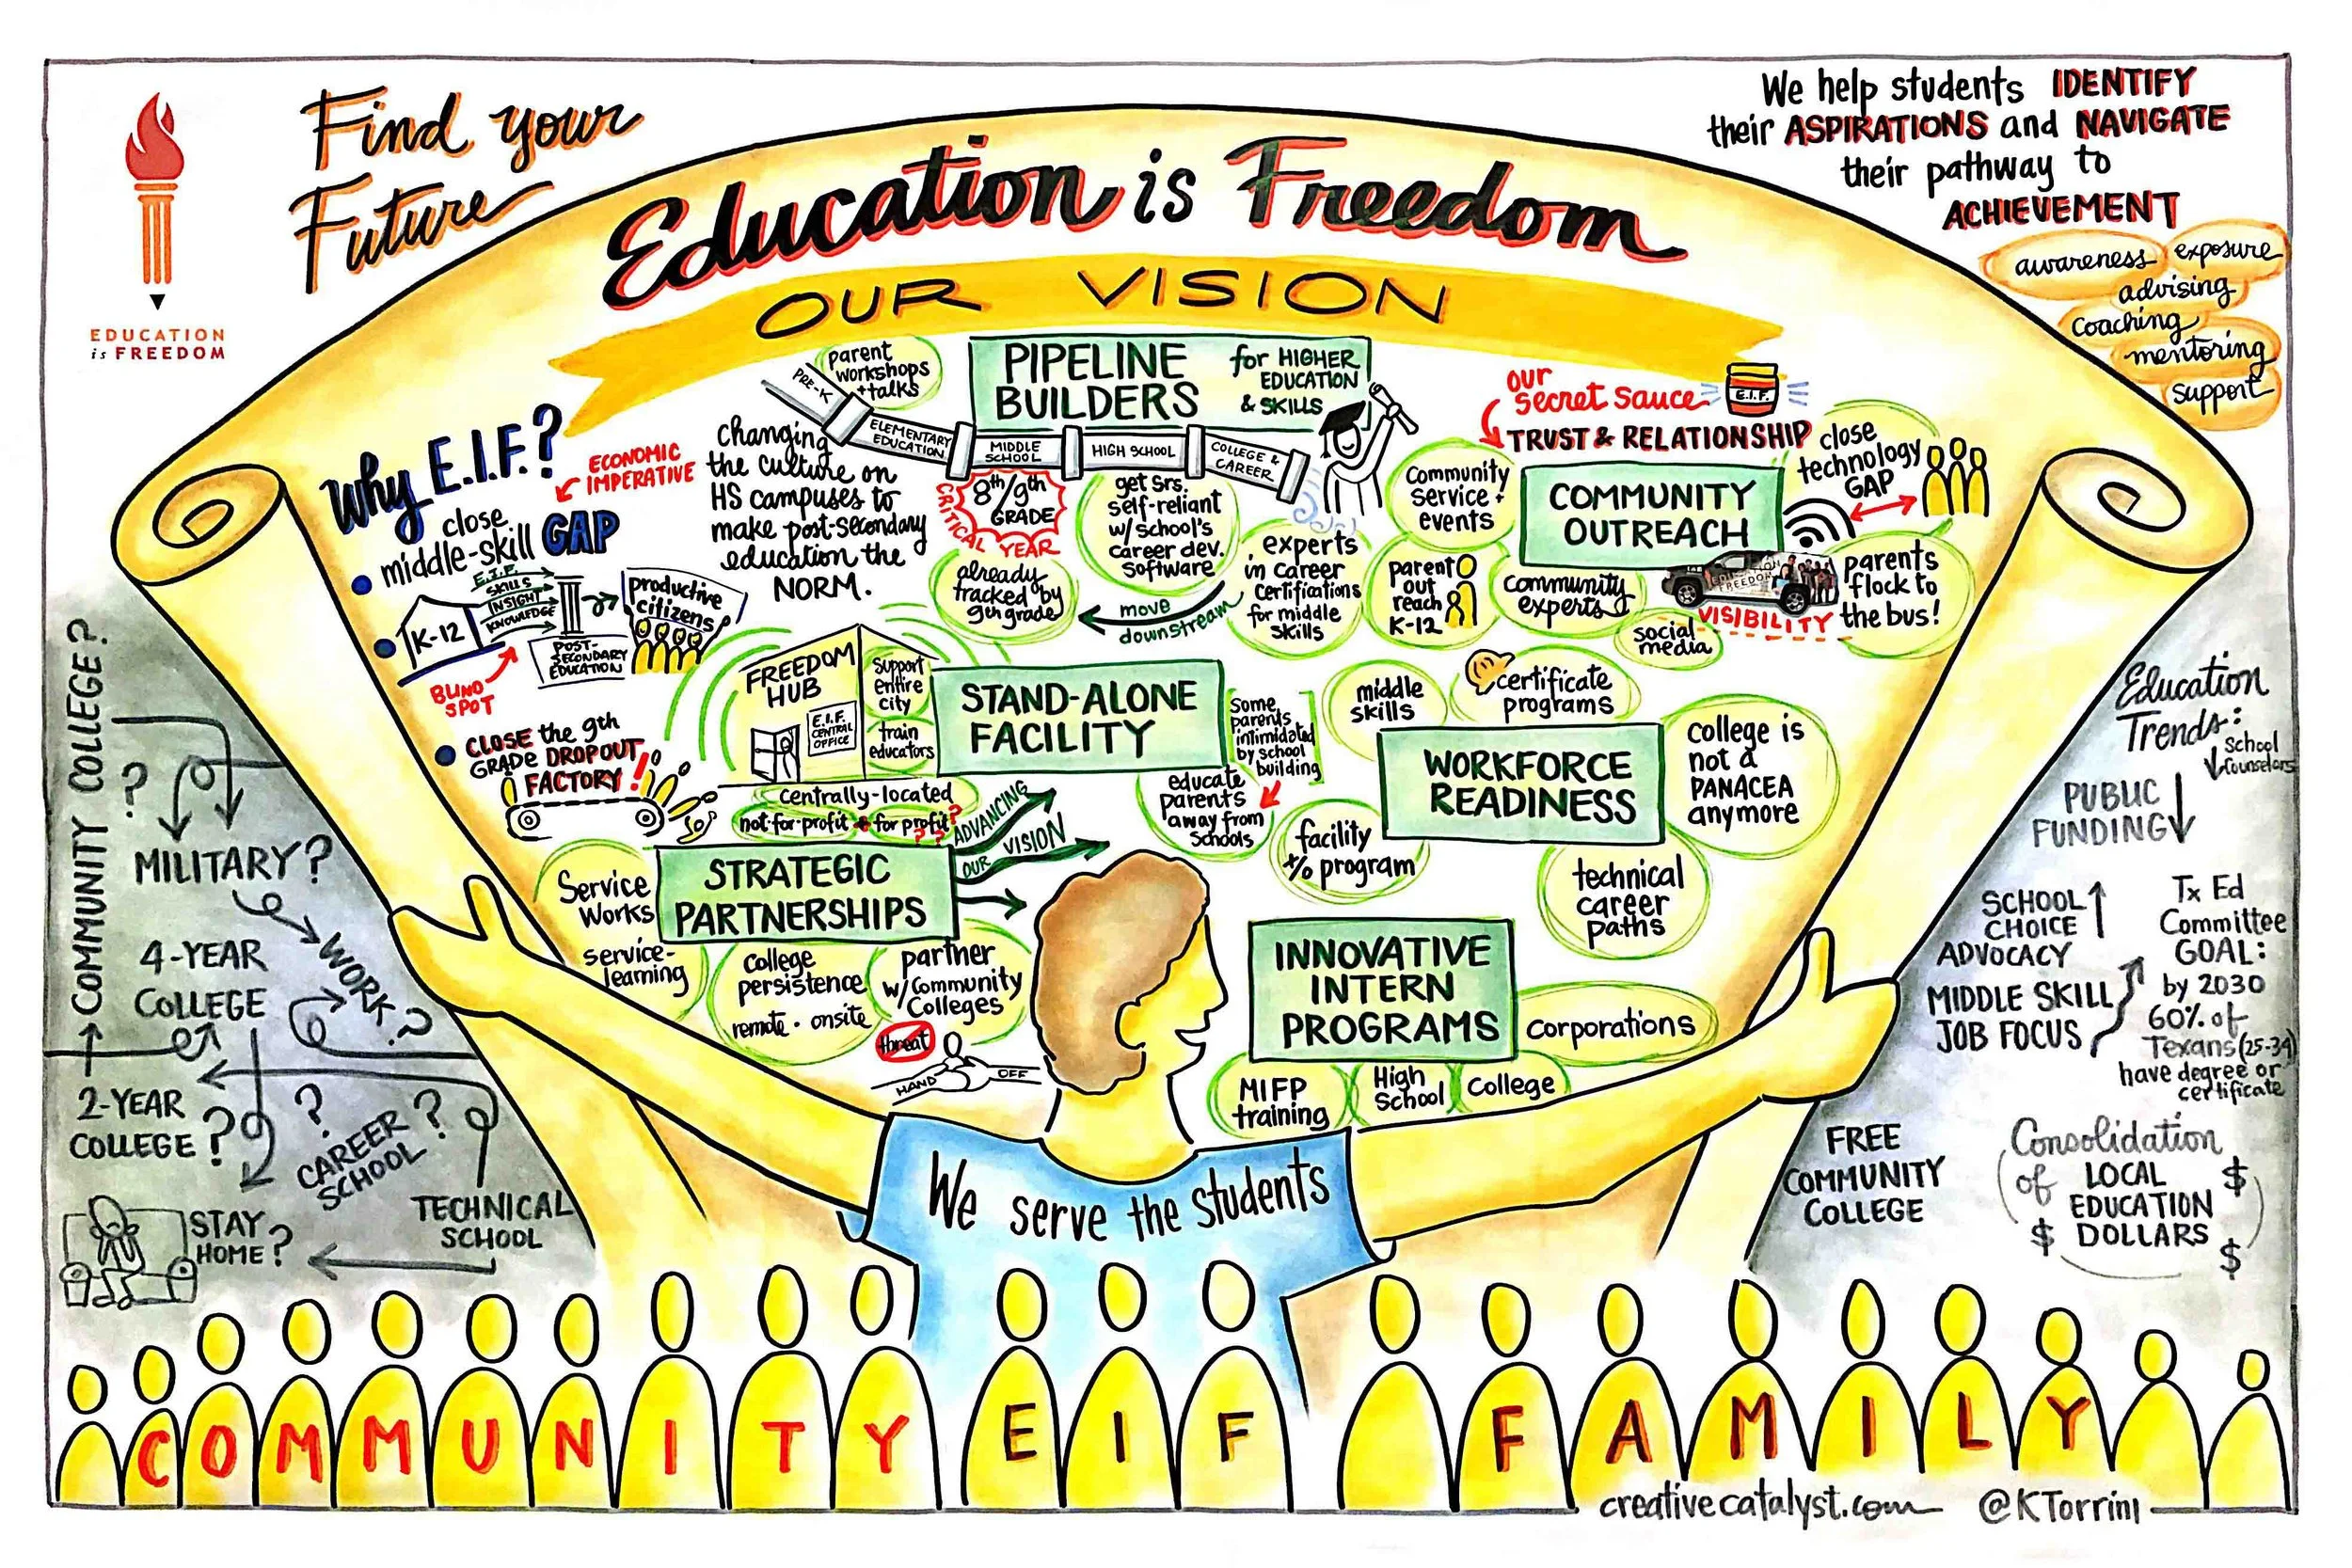 Find your
Future
EDUCATION
is FREEDOM
We help students IDENTIFY
their ASPIRATIONS and NAVIGATE
their pathway to
ACHIEVEMENT
awareness exposure
advising
coaching
mentoring
support
Education is Freedom
OUR VISION
Why E.I.F.?
ECONOMIC
IMPERATIVE
close
middle-skill GAP
E.I.F.
SKILLS
INSIGHT
KNOWLEDGE
K-12
POST-
SECONDARY
EDUCATION
productive
citizens
BLIND
SPOT
CLOSE the 9th
GRADE DROPOUT
FACTORY!
changing
the culture on
HS campuses to
make post-secondary
education the
NORM.
parent
workshops
+ talks
PIPELINE
BUILDERS
for HIGHER
EDUCATION
& SKILLS
PRE-K
ELEMENTARY
EDUCATION
MIDDLE
SCHOOL
HIGH SCHOOL
COLLEGE &
CAREER
8th/9th
GRADE
CRITICAL YEAR
already
tracked by
9th grade
get Srs.
self-reliant
w/school's
career dev.
software
move
downstream
experts
in career
certifications
for middle
skills
our
secret sauce
E.I.F.
TRUST & RELATIONSHIP
COMMUNITY
OUTREACH
Community
service +
events
close
technology
GAP
parent
out
reach
K-12
community
experts
EDUCATION
FREEDOM
VISIBILITY
social
media
parents
flock to
the bus!
FREEDOM
HUB
E.I.F.
CENTRAL
OFFICE
support
entire
city
train
educators
STAND-ALONE
FACILITY
centrally-located
not-for-profit + for profit?
??
Some
parents
intimidated
by school
building
educate
parents
away from
schools
facility
+/o program
middle
skills
certificate
programs
WORKFORCE
READINESS
college is
not a
PANACEA
anymore
technical
career
paths
ADVANCING
OUR VISION
STRATEGIC
PARTNERSHIPS
Service
Works
service-
learning
College
persistence
remote · onsite
partner
w/Community
Colleges
threat
HAND OFF
INNOVATIVE
INTERN
PROGRAMS
corporations
MIFP
training
High
School
College
We serve the students
COMMUNITY COLLEGE?
?
MILITARY?
WORK?
4-YEAR
COLLEGE
2-YEAR
COLLEGE?
?
CAREER
SCHOOL?
TECHNICAL
SCHOOL
STAY
HOME?
Education
Trends:
School
Counselors
PUBLIC
FUNDING
SCHOOL
CHOICE
ADVOCACY
MIDDLE SKILL
JOB FOCUS
Tx Ed
Committee
GOAL:
by 2030
60% of
Texans (25-34)
have degree or
certificate
FREE
COMMUNITY
COLLEGE
Consolidation
of LOCAL
EDUCATION
DOLLARS
$
$
$
COMMUNITY EIF FAMILY
creativecatalyst.com @KTorrini